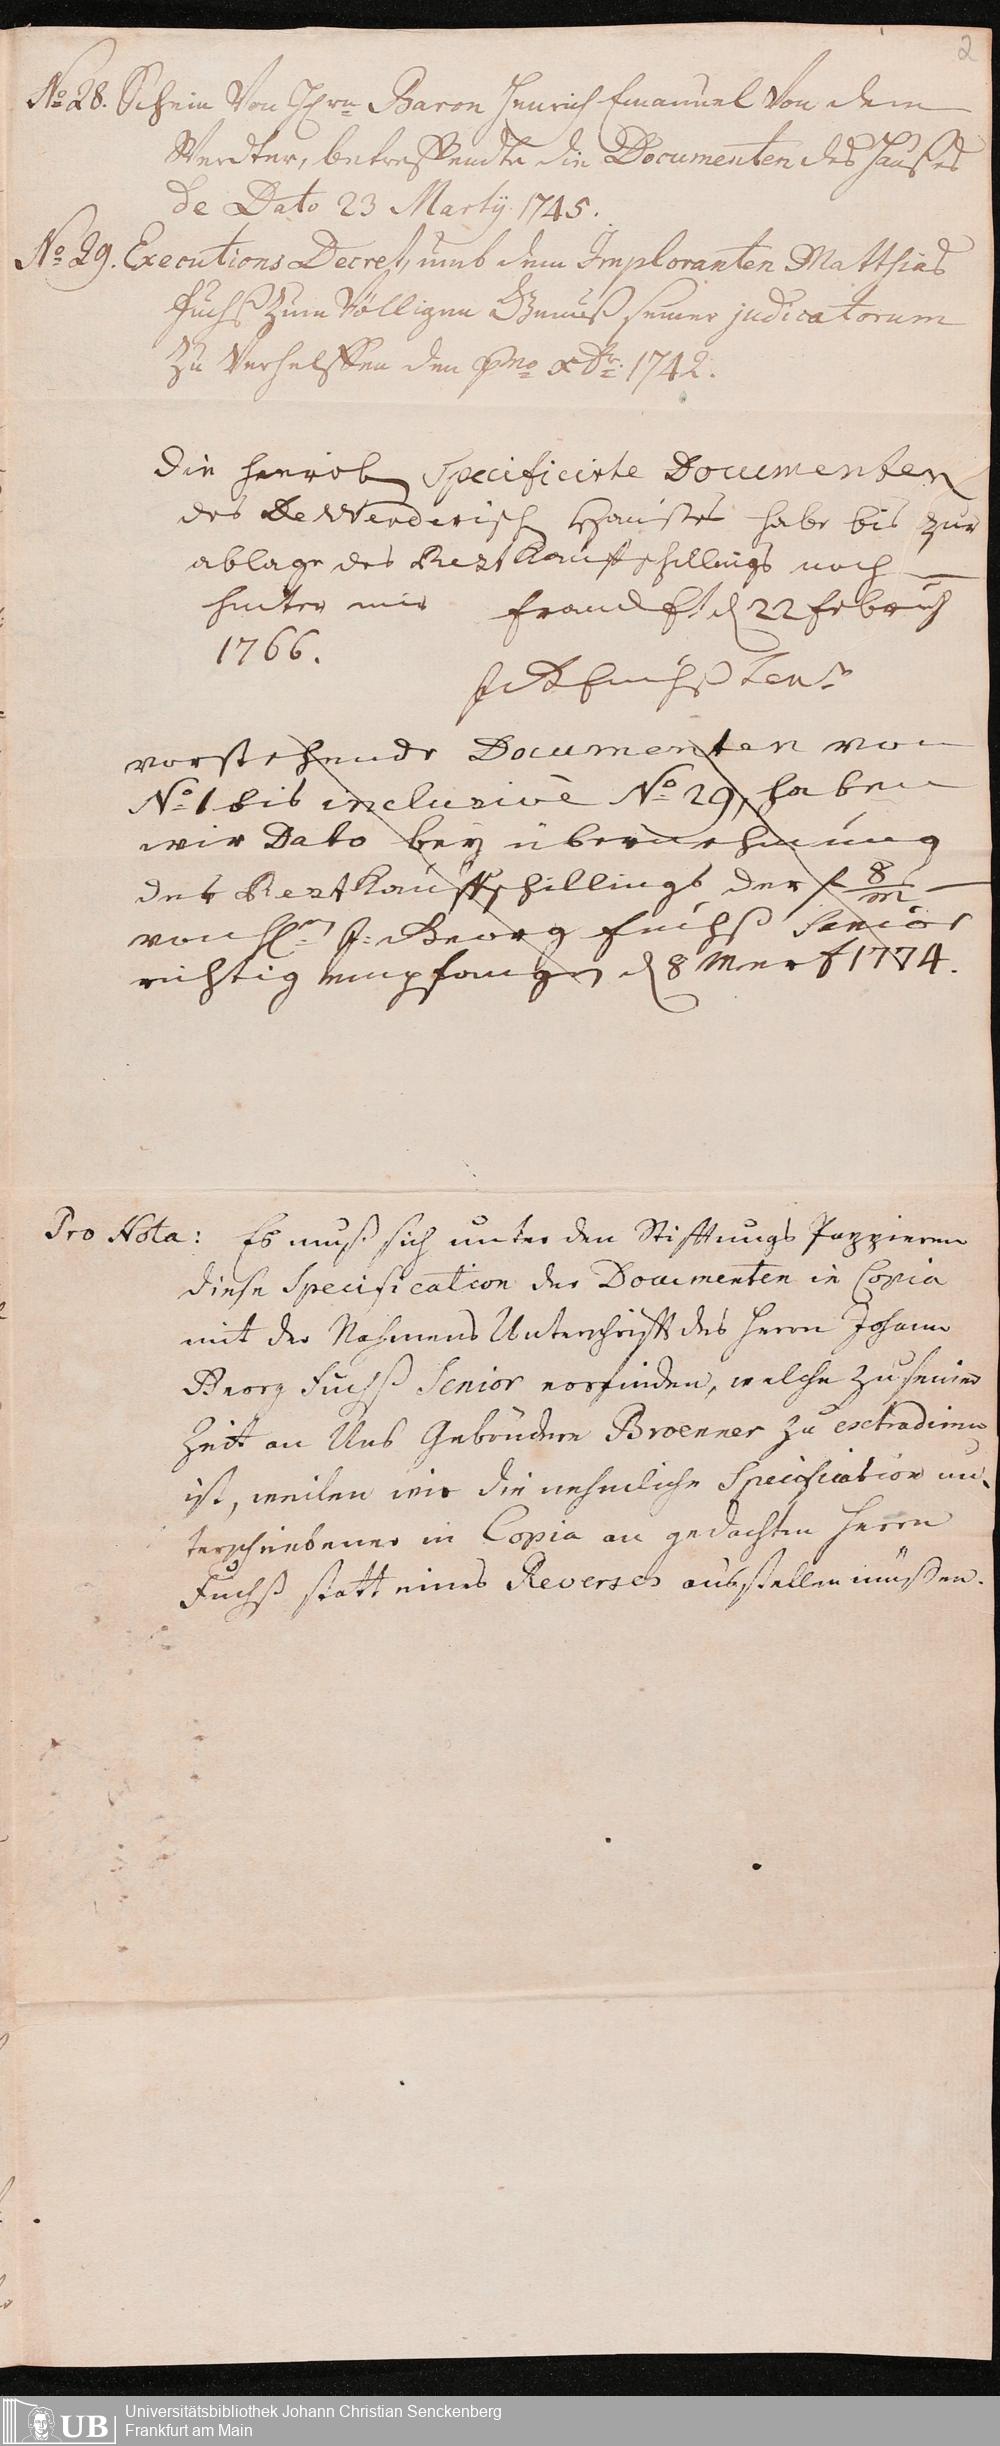 2
No. 28. Schein Von Hrn Baron Henrich Emanuel Von dem
Werdter, betreffendte die Documenten des Hausses
de Dato 23 Martÿ 1745.
No. 29. Executions Decret, umb dem Imploranten Matthias
Fuchs zum Völligen Genuss seiner judicatorum
zu Verhelffen den pmo xbr. 1742.
die hierob Specificirte Documenten
des De Werderisch Hauses habe bis zur
ablage des Restkaufschillings noch
hinter mir franckft d 22 febr
1766.
Fuchs Sen.
vorstehende Documenten von
No. 1 bis inclusive No. 29, haben
wir Dato bey übernehmung
des Restkauffschillings der f 8/m
von Hrn J. Georg Fuchs Senior
richtig empfangen d 8 Mertz 1774.
Pro Nota: Es muß sich unter den Stifftungs Pappieren
diese Specification der Documenten in Copia
mit der Nahmens Unterschrifft des Herrn Johann
Georg Fuchß Senior vorfinden, welche zu seiner
Zeit an Uns Gebrüdere Broenner zu extradiren
ist, weilen wir die nehmliche Specification un-
terschriebener in Copia an gedachten Herrn
Fuchß statt eines Reverses ausstellen müßen.
UB
Universitätsbibliothek Johann Christian Senckenberg
Frankfurt am Main